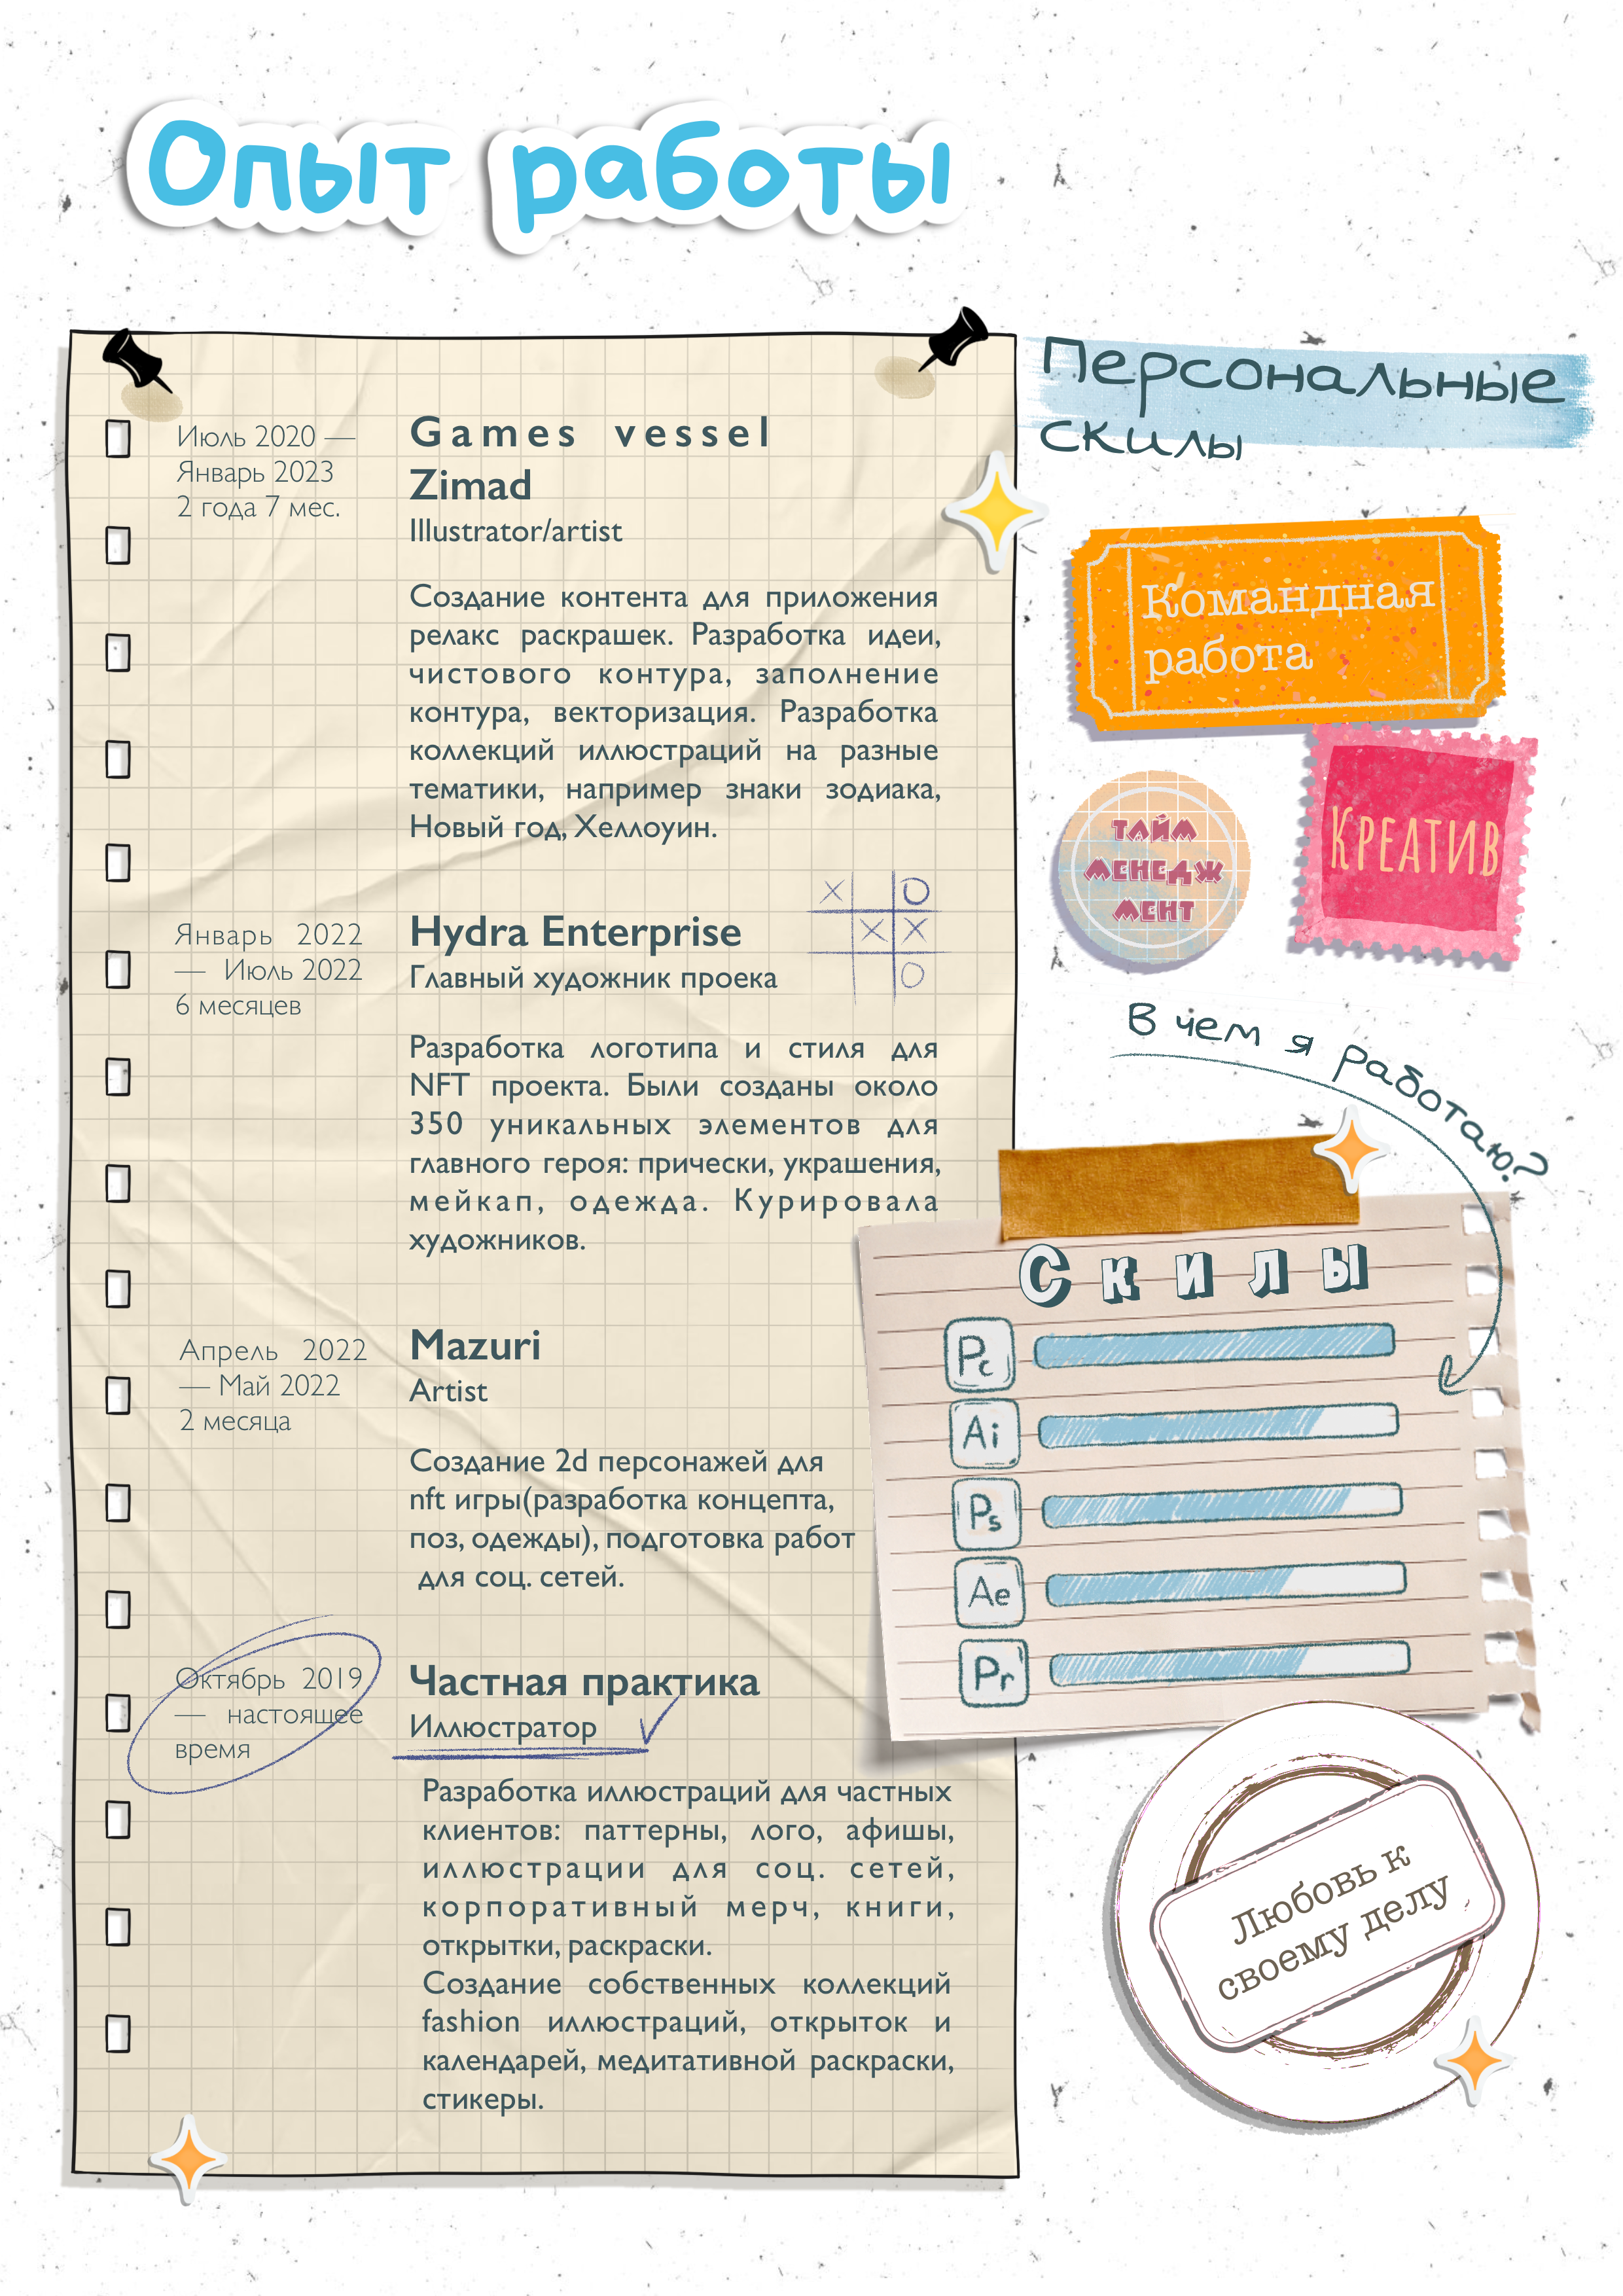 Опыт работы
Июль 2020 —
Январь 2023
2 года 7 мес.
Games vessel
Zimad
Illustrator/artist
Создание контента для приложения
релакс раскрашек. Разработка идеи,
чистового контура, заполнение
контура, векторизация. Разработка
коллекций иллюстраций на разные
тематики, например знаки зодиака,
Новый год, Хеллоуин.
Январь 2022
— Июль 2022
6 месяцев
Hydra Enterprise
Главный художник проека
X O
X X
O
Разработка логотипа и стиля для
NFT проекта. Были созданы около
350 уникальных элементов для
главного героя: прически, украшения,
мейкап, одежда. Курировала
художников.
Апрель 2022
— Май 2022
2 месяца
Mazuri
Artist
Создание 2d персонажей для
nft игры(разработка концепта,
поз, одежды), подготовка работ
для соц. сетей.
Октябрь 2019
— настоящее
время
Частная практика
Иллюстратор
Разработка иллюстраций для частных
клиентов: паттерны, лого, афишы,
иллюстрации для соц. сетей,
корпоративный мерч, книги,
открытки, раскраски.
Создание собственных коллекций
fashion иллюстраций, открыток и
календарей, медитативной раскраски,
стикеры.
Персональные
скилы
Командная
работа
тайм
менедж
мент
Креатив
В чем я работаю?
Скилы
Pc
Ai
Ps
Ae
Pr
Любовь к
своему делу